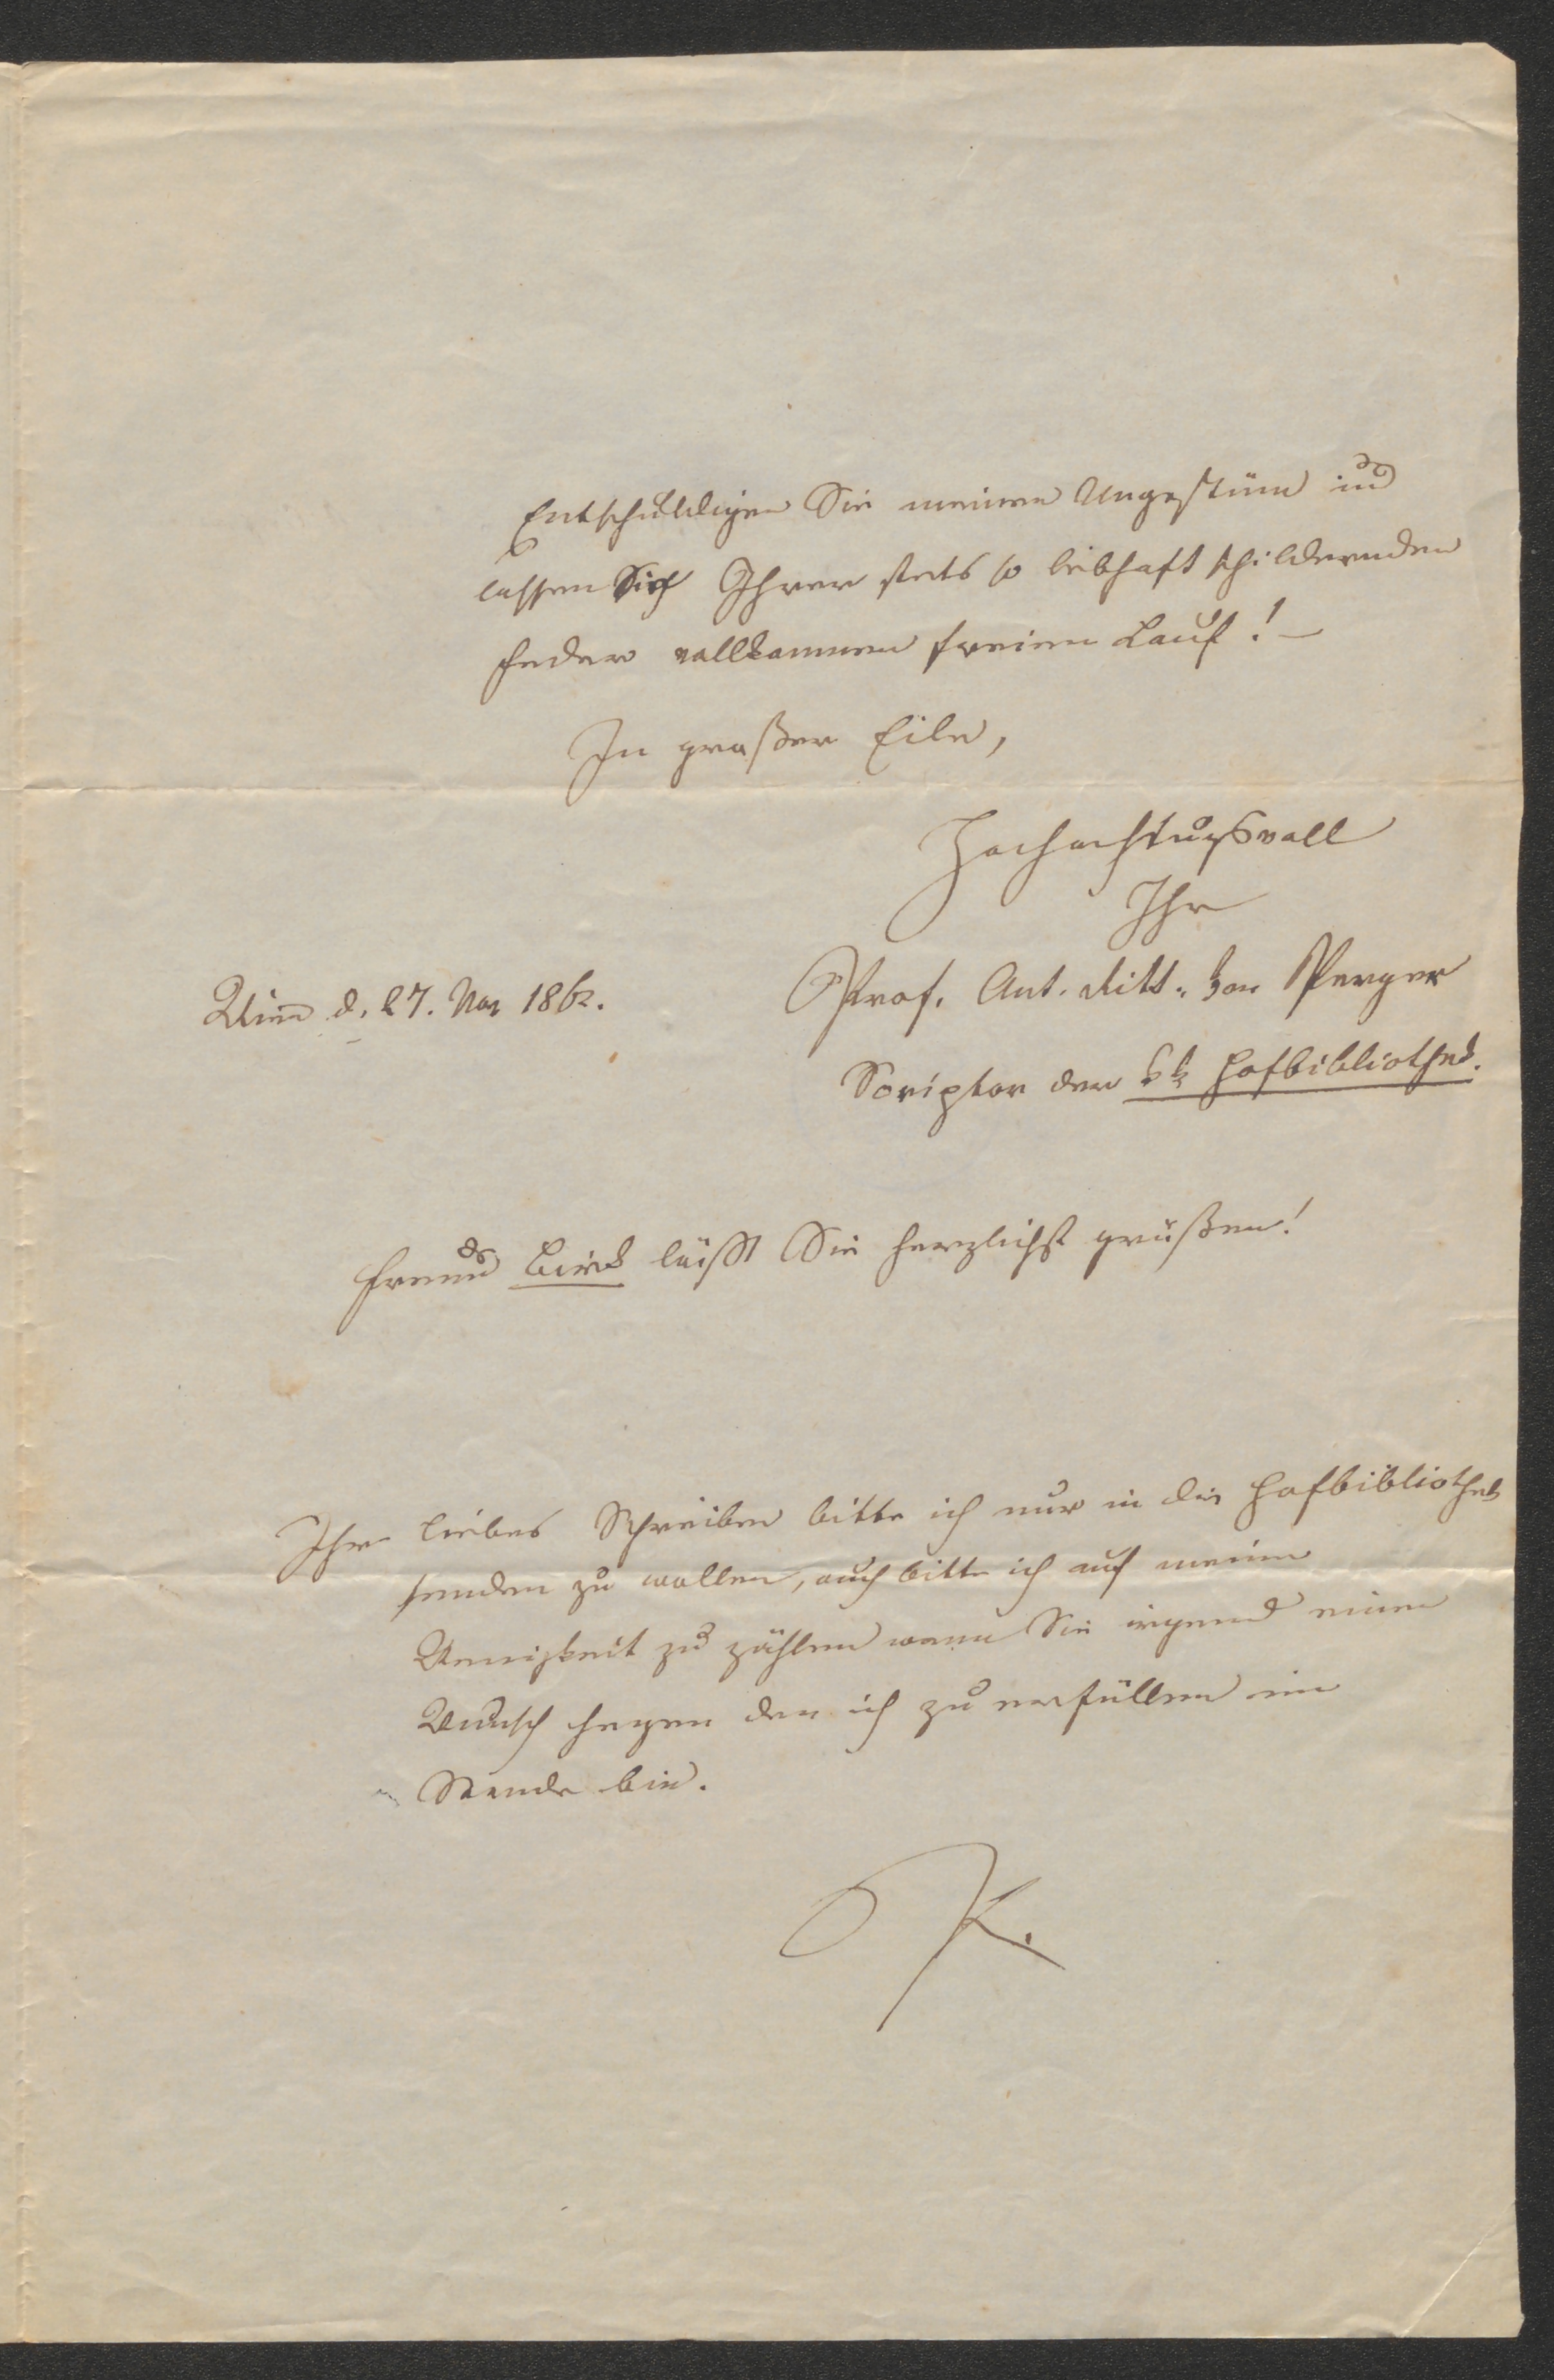 Entschuldigen Sie meinen Ungestüm und
lassen Sie Ihrer stets so lebhaft schildernden
Feder vollkommen freien Lauf! –
In großer Eile,
Hochachtungsvoll
Ihr
Prof. Ant. Ritt. von Perger
Wien d. 27. Nov 1862.
Scriptor der kk Hofbibliothek.
Freund Birk läßt Sie herzlichst grüßen!
Ihr liebes Schreiben bitte ich nur in die Hofbibliothek
senden zu wollen, auch bitte ich auf meine
Wenigkeit zu zählen wenn Sie irgend einen
Wunsch hegen den ich zu erfüllen im
Stande bin.